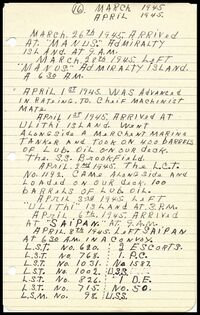 (16) MARCH 1945
APRIL 1945.
MARCH. 26TH 1945. ARRIVED
AT. "MANUS" ADMIRALTY
ISLAND. AT 9. A.M.
MARCH. 28TH 1945. LEFT
"MANUS" ADMIRALTY ISLAND.
A 630 A.M.
APRIL 1ST 1945. WAS ADVANCED
IN RATEING. TO. CHEIF MACHINIST
MATE.
APRIL 1ST 1945. ARRIVED AT
ULITHI ISLAND. WENT
ALONGSIDE A MERCHENT MARINE
TANKER AND TOOK ON 400 BARRELS
OF LUB OIL ON OUR DECK.
THE. S.S. BROOKFIELD.
APRIL 2ND 1945. THE L.C.T.
NO. 1192. CAME ALONGSIDE AND
LOADED ON OUR DECK 100
BARRELS OF LUB. OIL.
APRIL 3RD 1945. LEFT
"ULITHI" ISLAND AT 3 P.M.
APRIL. 6TH 1945. ARRIVED
AT "SAIPAN" AT. 9. A.M.
APRIL. 8TH 1945. LEFT SAIPAN
AT 630 A.M. IN A CONVOY.
L.S.T. NO. 680. 3 ESCORTS.
L.S.T. NO. 768. 1. P.C.
L.S.T. NO. 1031. NO 1587.
L.S.T. NO. 1002. U.S.S.
L.S.T. NO. 826. 1 D.E.
L.S.T. NO. 715. NO. 50.
L.S.M. NO. 98. U.S.S.